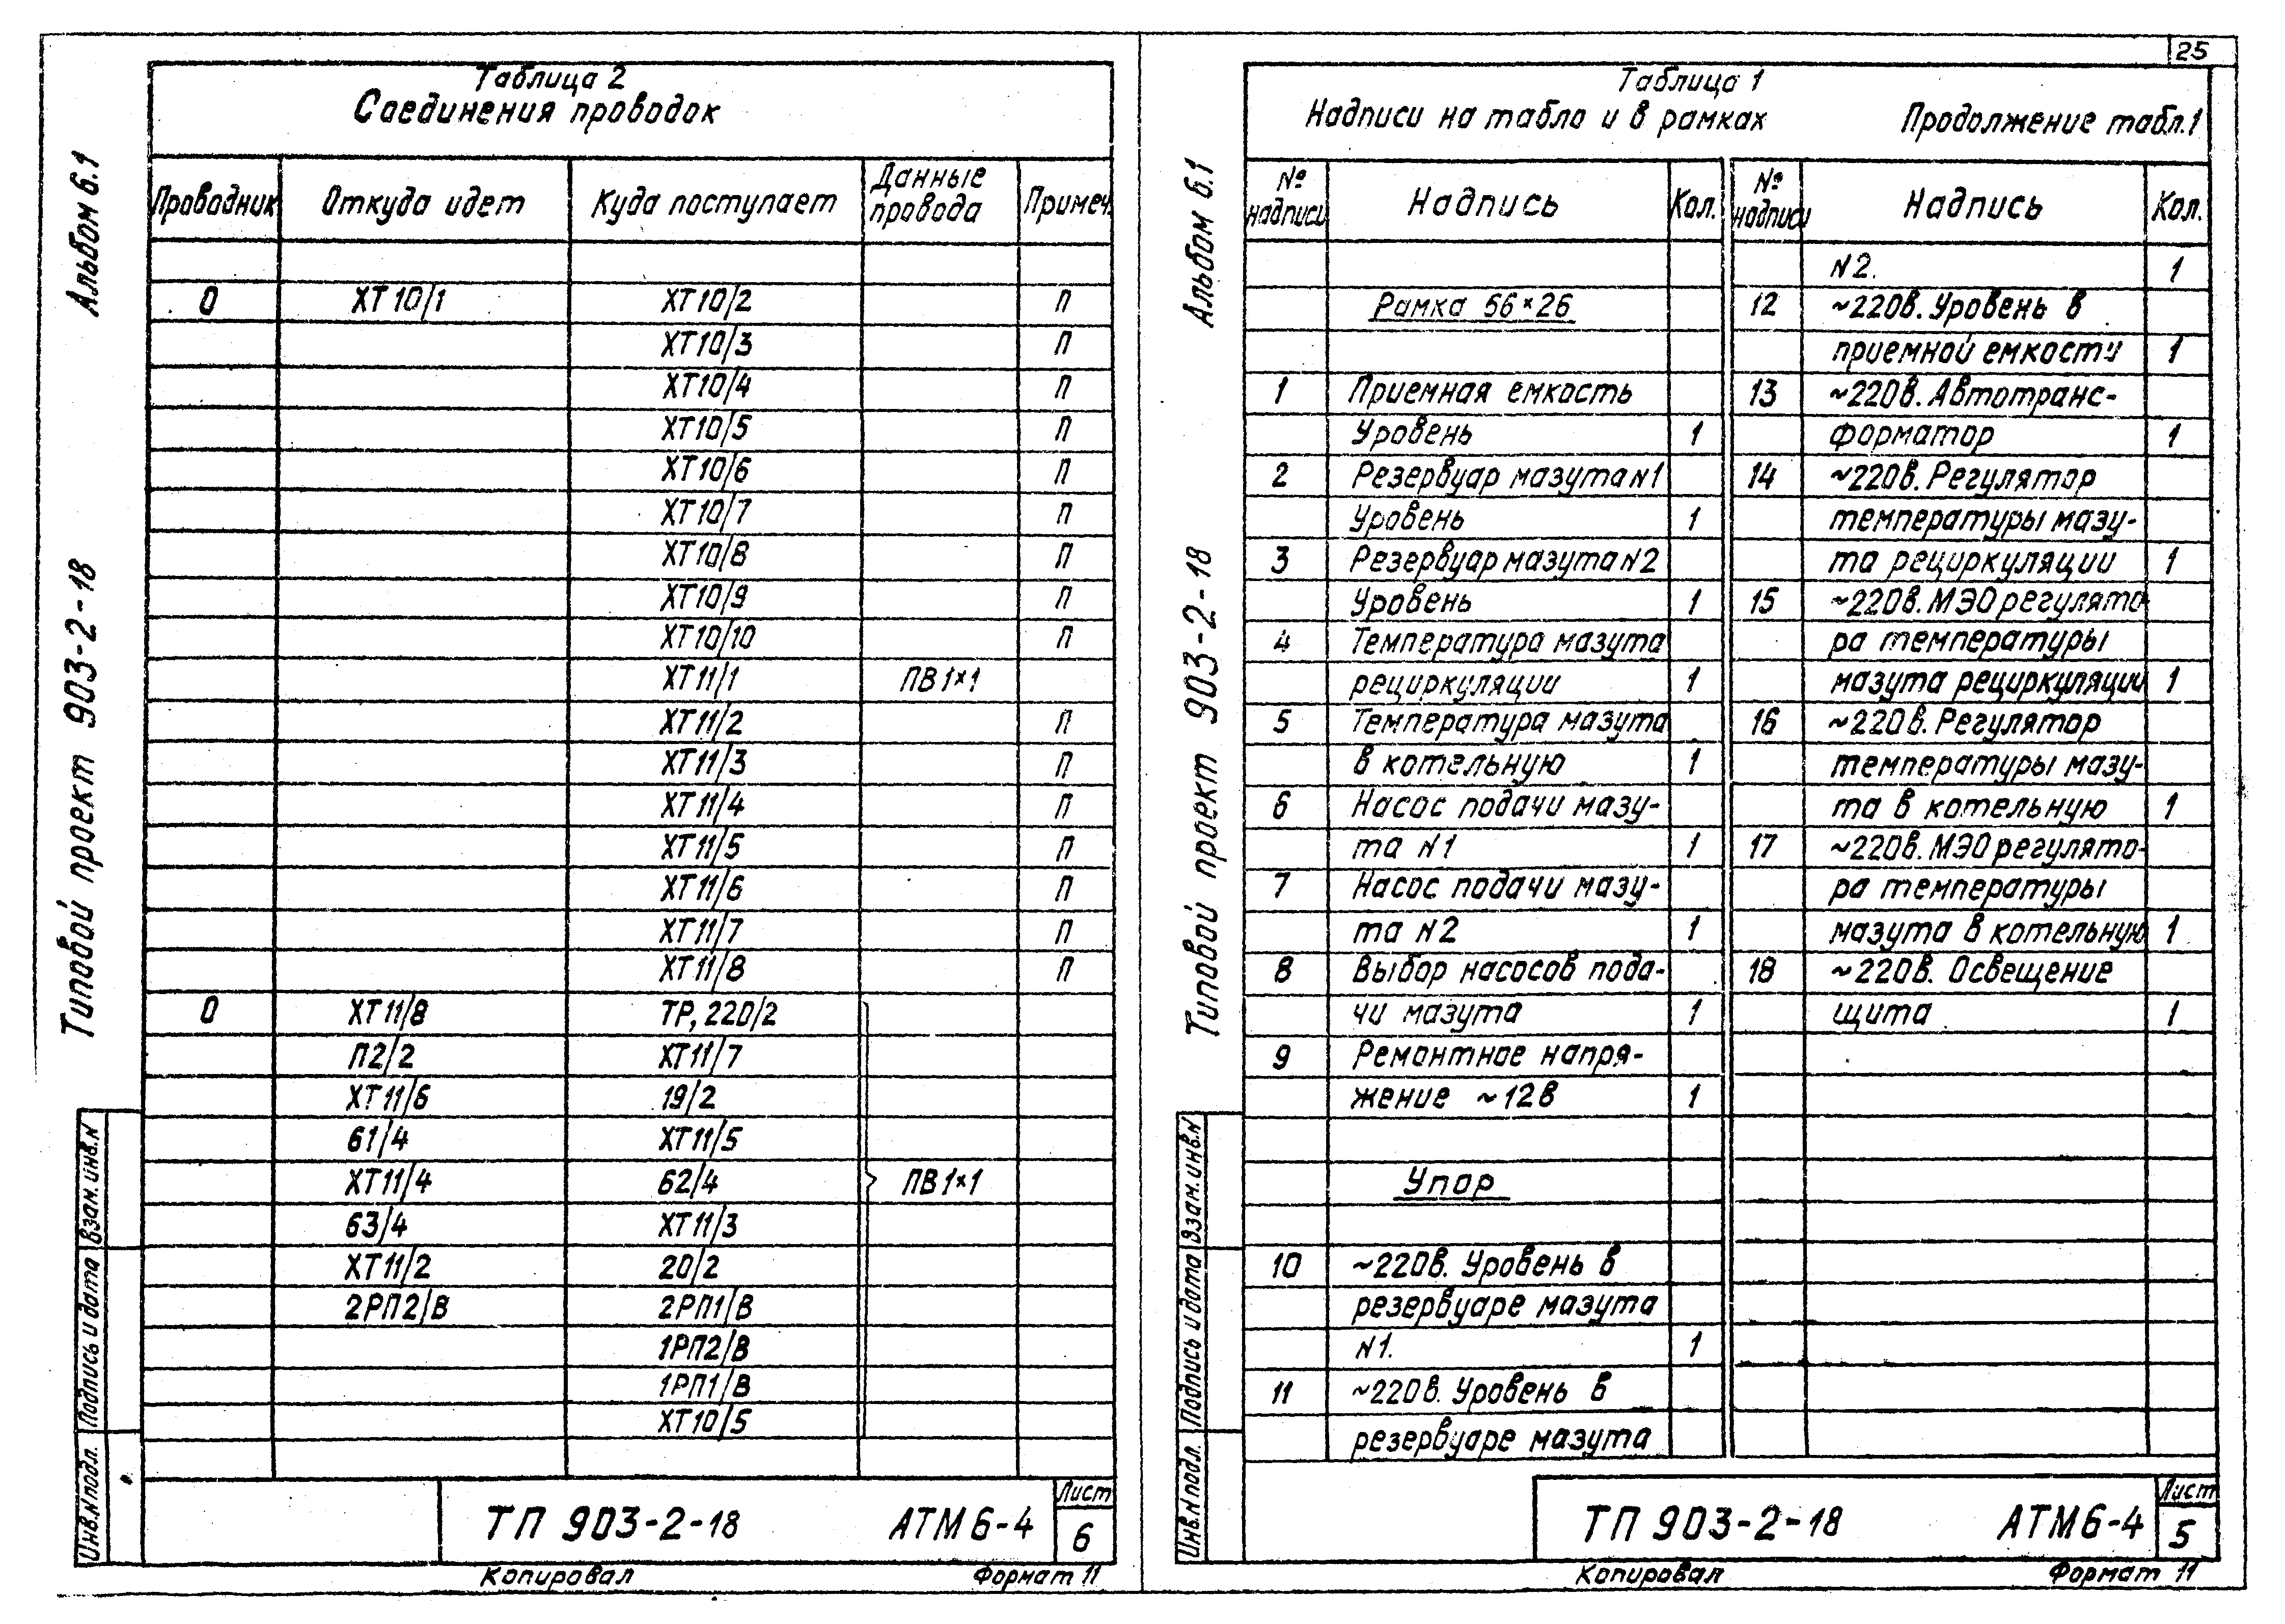 25
Альбом 6.1
Типовой проект 903-2-18
Таблица 2
Соединения проводок
Проводник Откуда идет Куда поступает Данные провода Примеч.
0 ХТ10/1 ХТ10/2 П
ХТ10/3 П
ХТ10/4 П
ХТ10/5 П
ХТ10/6 П
ХТ10/7 П
ХТ10/8 П
ХТ10/9 П
ХТ10/10 П
ХТ11/1 ПВ1×1
ХТ11/2 П
ХТ11/3 П
ХТ11/4 П
ХТ11/5 П
ХТ11/6 П
ХТ11/7 П
ХТ11/8 П
0 ХТ11/8 ТР, 220/2
П2/2 ХТ11/7
ХТ11/6 19/2
61/4 ХТ11/5
ХТ11/4 62/4 ПВ1×1
63/4 ХТ11/3
ХТ11/2 20/2
2РП2/В 2РП1/В
1РП2/В
1РП1/В
ХТ10/5
Инв.N подл. Подпись и дата Взам.инв.N
ТП 903-2-18 АТМ6-4 Лист 6
Копировал Формат 11
Альбом 6.1
Типовой проект 903-2-18
Таблица 1
Надписи на табло и в рамках Продолжение табл.1
№ надписи Надпись Кол.
Рамка 66×26
1 Приемная емкость
Уровень 1
2 Резервуар мазута N1
Уровень 1
3 Резервуар мазута N2
Уровень 1
4 Температура мазута
рециркуляции 1
5 Температура мазута
в котельную 1
6 Насос подачи мазу-
та N1 1
7 Насос подачи мазу-
та N2 1
8 Выбор насосов пода-
чи мазута 1
9 Ремонтное напря-
жение ~12в 1
Упор
10 ~220в. Уровень в
резервуаре мазута
N1. 1
11 ~220в. Уровень в
резервуаре мазута
№ надписи Надпись Кол.
N2. 1
12 ~220в. Уровень в
приемной емкости 1
13 ~220в. Автотранс-
форматор 1
14 ~220в. Регулятор
температуры мазу-
та рециркуляции 1
15 ~220в. МЭО регулято
ра температуры
мазута рециркуляции 1
16 ~220в. Регулятор
температуры мазу-
та в котельную 1
17 ~220в. МЭО регулято-
ра температуры
мазута в котельную 1
18 ~220в. Освещение
щита 1
Инв.N подл. Подпись и дата Взам.инв.N
ТП 903-2-18 АТМ6-4 Лист 5
Копировал Формат 11